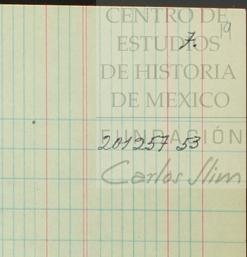 CENTRO DE
19
ESTUDIOS
7.
DE HISTORIA
DE MEXICO
FUNDACIÓN
201257 53
Carlos Slim